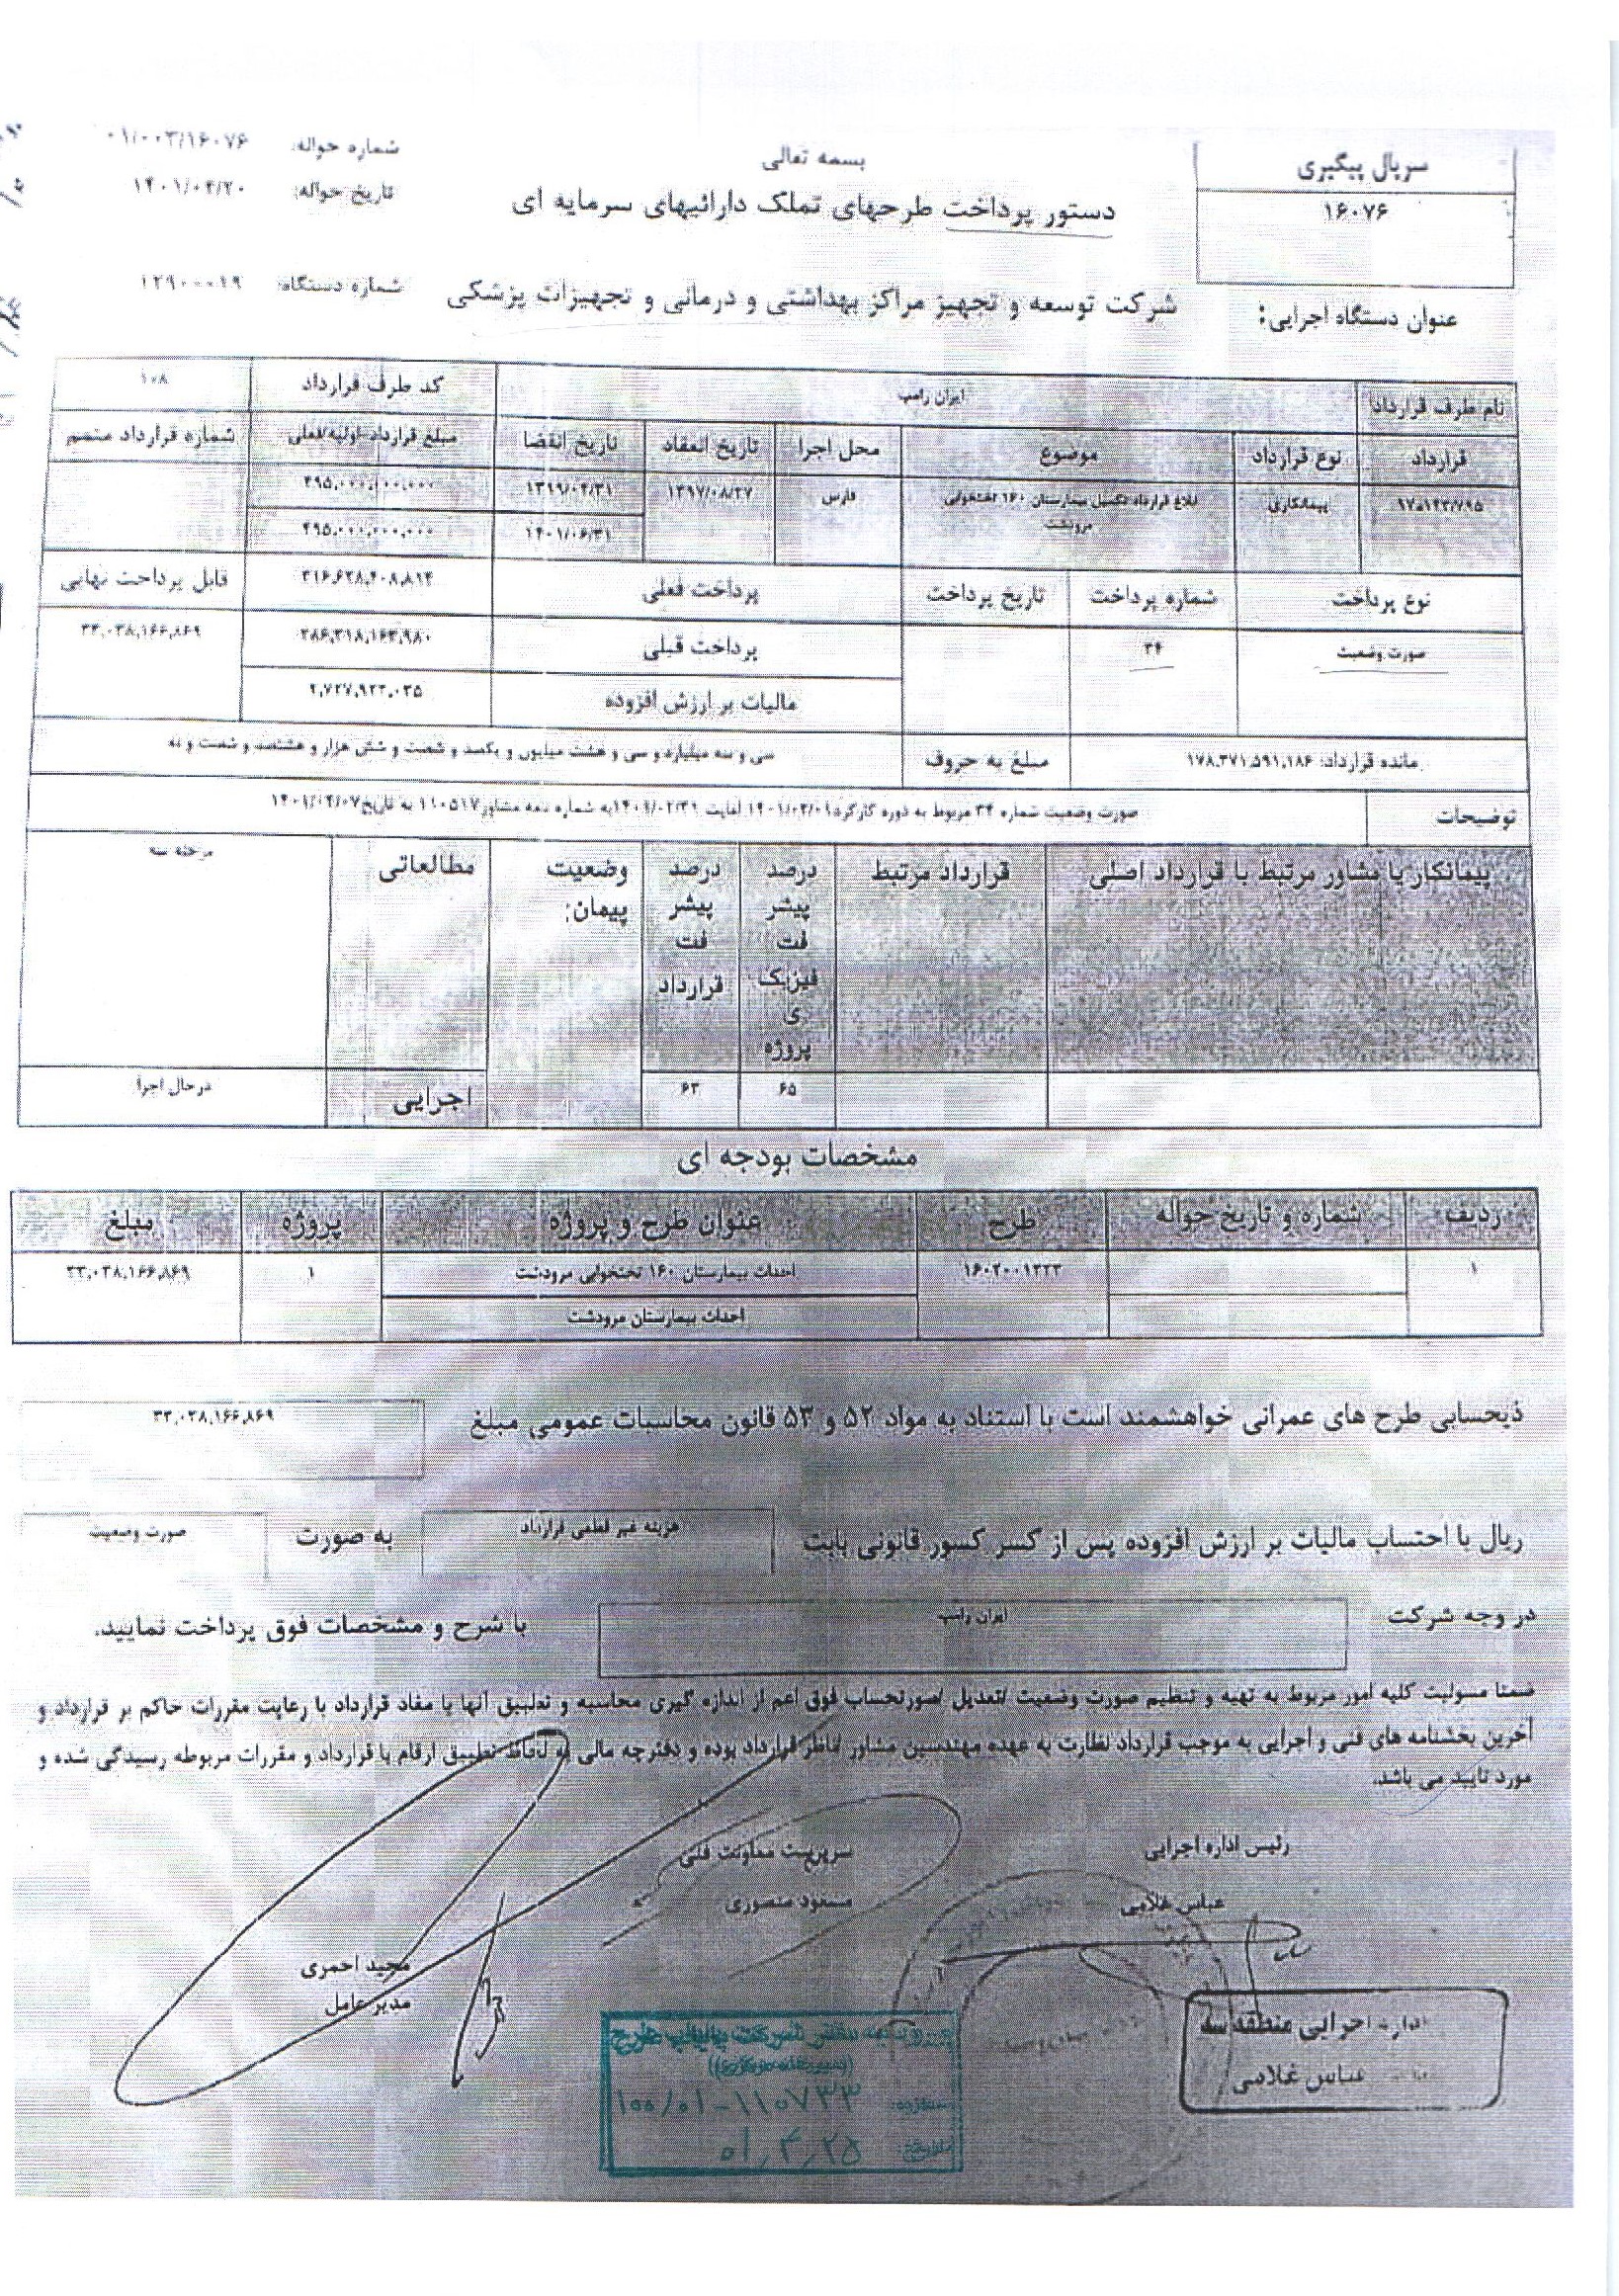 بسمه تعالی
سریال پیگیری
۱۶۰۷۶
شماره حواله: ۰۱/۰۰۳/۱۶۰۷۶
تاریخ حواله: ۱۴۰۱/۰۴/۲۰
دستور پرداخت طرحهای تملک دارائیهای سرمایه ای
عنوان دستگاه اجرایی: شرکت توسعه و تجهیز مراکز بهداشتی و درمانی و تجهیزات پزشکی
شماره دستگاه:
نام طرف قرارداد ایران رامپ کد طرف قرارداد ۱۰۸
قرارداد نوع قرارداد موضوع محل اجرا تاریخ انعقاد تاریخ انقضا مبلغ قرارداد اولیه/فعلی شماره قرارداد متمم
پیمانکاری ابلاغ قرارداد تکمیل بیمارستان ۱۶۰ تختخوابی فارس ۱۳۹۷/۰۸/۲۷ ۴۹۵,۰۰۰,۰۰۰,۰۰۰
مرودشت ۱۴۰۱/۰۶/۳۱ ۴۹۵,۰۰۰,۰۰۰,۰۰۰
نوع پرداخت شماره پرداخت تاریخ پرداخت پرداخت فعلی ۳۱۶,۶۲۸,۴۰۸,۸۱۴ قابل پرداخت نهایی
صورت وضعیت ۳۴ پرداخت قبلی ۲۸۶,۳۱۸,۱۶۴,۹۸۰ ۳۳,۰۳۸,۱۶۶,۸۶۹
مالیات بر ارزش افزوده ۲,۷۲۷,۹۲۳,۰۳۵
مانده قرارداد: ۱۷۸,۳۷۱,۵۹۱,۱۸۶ مبلغ به حروف سی و سه میلیارد و سی و هشت میلیون و یکصد و شصت و شش هزار و هشتصد و شصت و نه
توضیحات صورت وضعیت شماره ۳۴ مربوط به دوره کارکرد لغایت به شماره نامه مشاور ۱۱۰۵۱۷ به تاریخ
پیمانکار یا مشاور مرتبط با قرارداد اصلی قرارداد مرتبط درصد پیشرفت فیزیکی پروژه درصد پیشرفت قرارداد وضعیت پیمان: مطالعاتی مرحله سه
۶۵ ۶۳ اجرایی درحال اجرا
مشخصات بودجه ای
ردیف شماره و تاریخ حواله طرح عنوان طرح و پروژه پروژه مبلغ
۱ احداث بیمارستان ۱۶۰ تختخوابی مرودشت ۱ ۳۳,۰۳۸,۱۶۶,۸۶۹
احداث بیمارستان مرودشت
ذیحسابی طرح های عمرانی خواهشمند است با استناد به مواد ۵۲ و ۵۳ قانون محاسبات عمومی مبلغ ۳۳,۰۳۸,۱۶۶,۸۶۹
ریال با احتساب مالیات بر ارزش افزوده پس از کسر کسور قانونی بابت هزینه غیر قطعی قرارداد به صورت صورت وضعیت
در وجه شرکت ایران رامپ با شرح و مشخصات فوق پرداخت نمایید.
ضمنا مسولیت کلیه امور مربوط به تهیه و تنظیم صورت وضعیت /تعدیل /صورتحساب فوق اعم از اندازه گیری محاسبه و تطبیق آنها با مفاد قرارداد با رعایت مقررات حاکم بر قرارداد و
آخرین بخشنامه های فنی و اجرایی به موجب قرارداد نظارت به عهده مهندسین مشاور ناظر قرارداد بوده و دفترچه مالی به لحاظ تطبیق ارقام با قرارداد و مقررات مربوطه رسیدگی شده و
مورد تایید می باشد.
رئیس اداره اجرایی
عباس غلامی
سرپرست معاونت فنی
مسعود منصوری
مجید احمری
مدیر عامل
اداره اجرایی منطقه سه
عباس غلامی
شماره: ۱۰۰/۰۱-۱۱۰۷۳۳
تاریخ: ۰۱,۴,۲۵